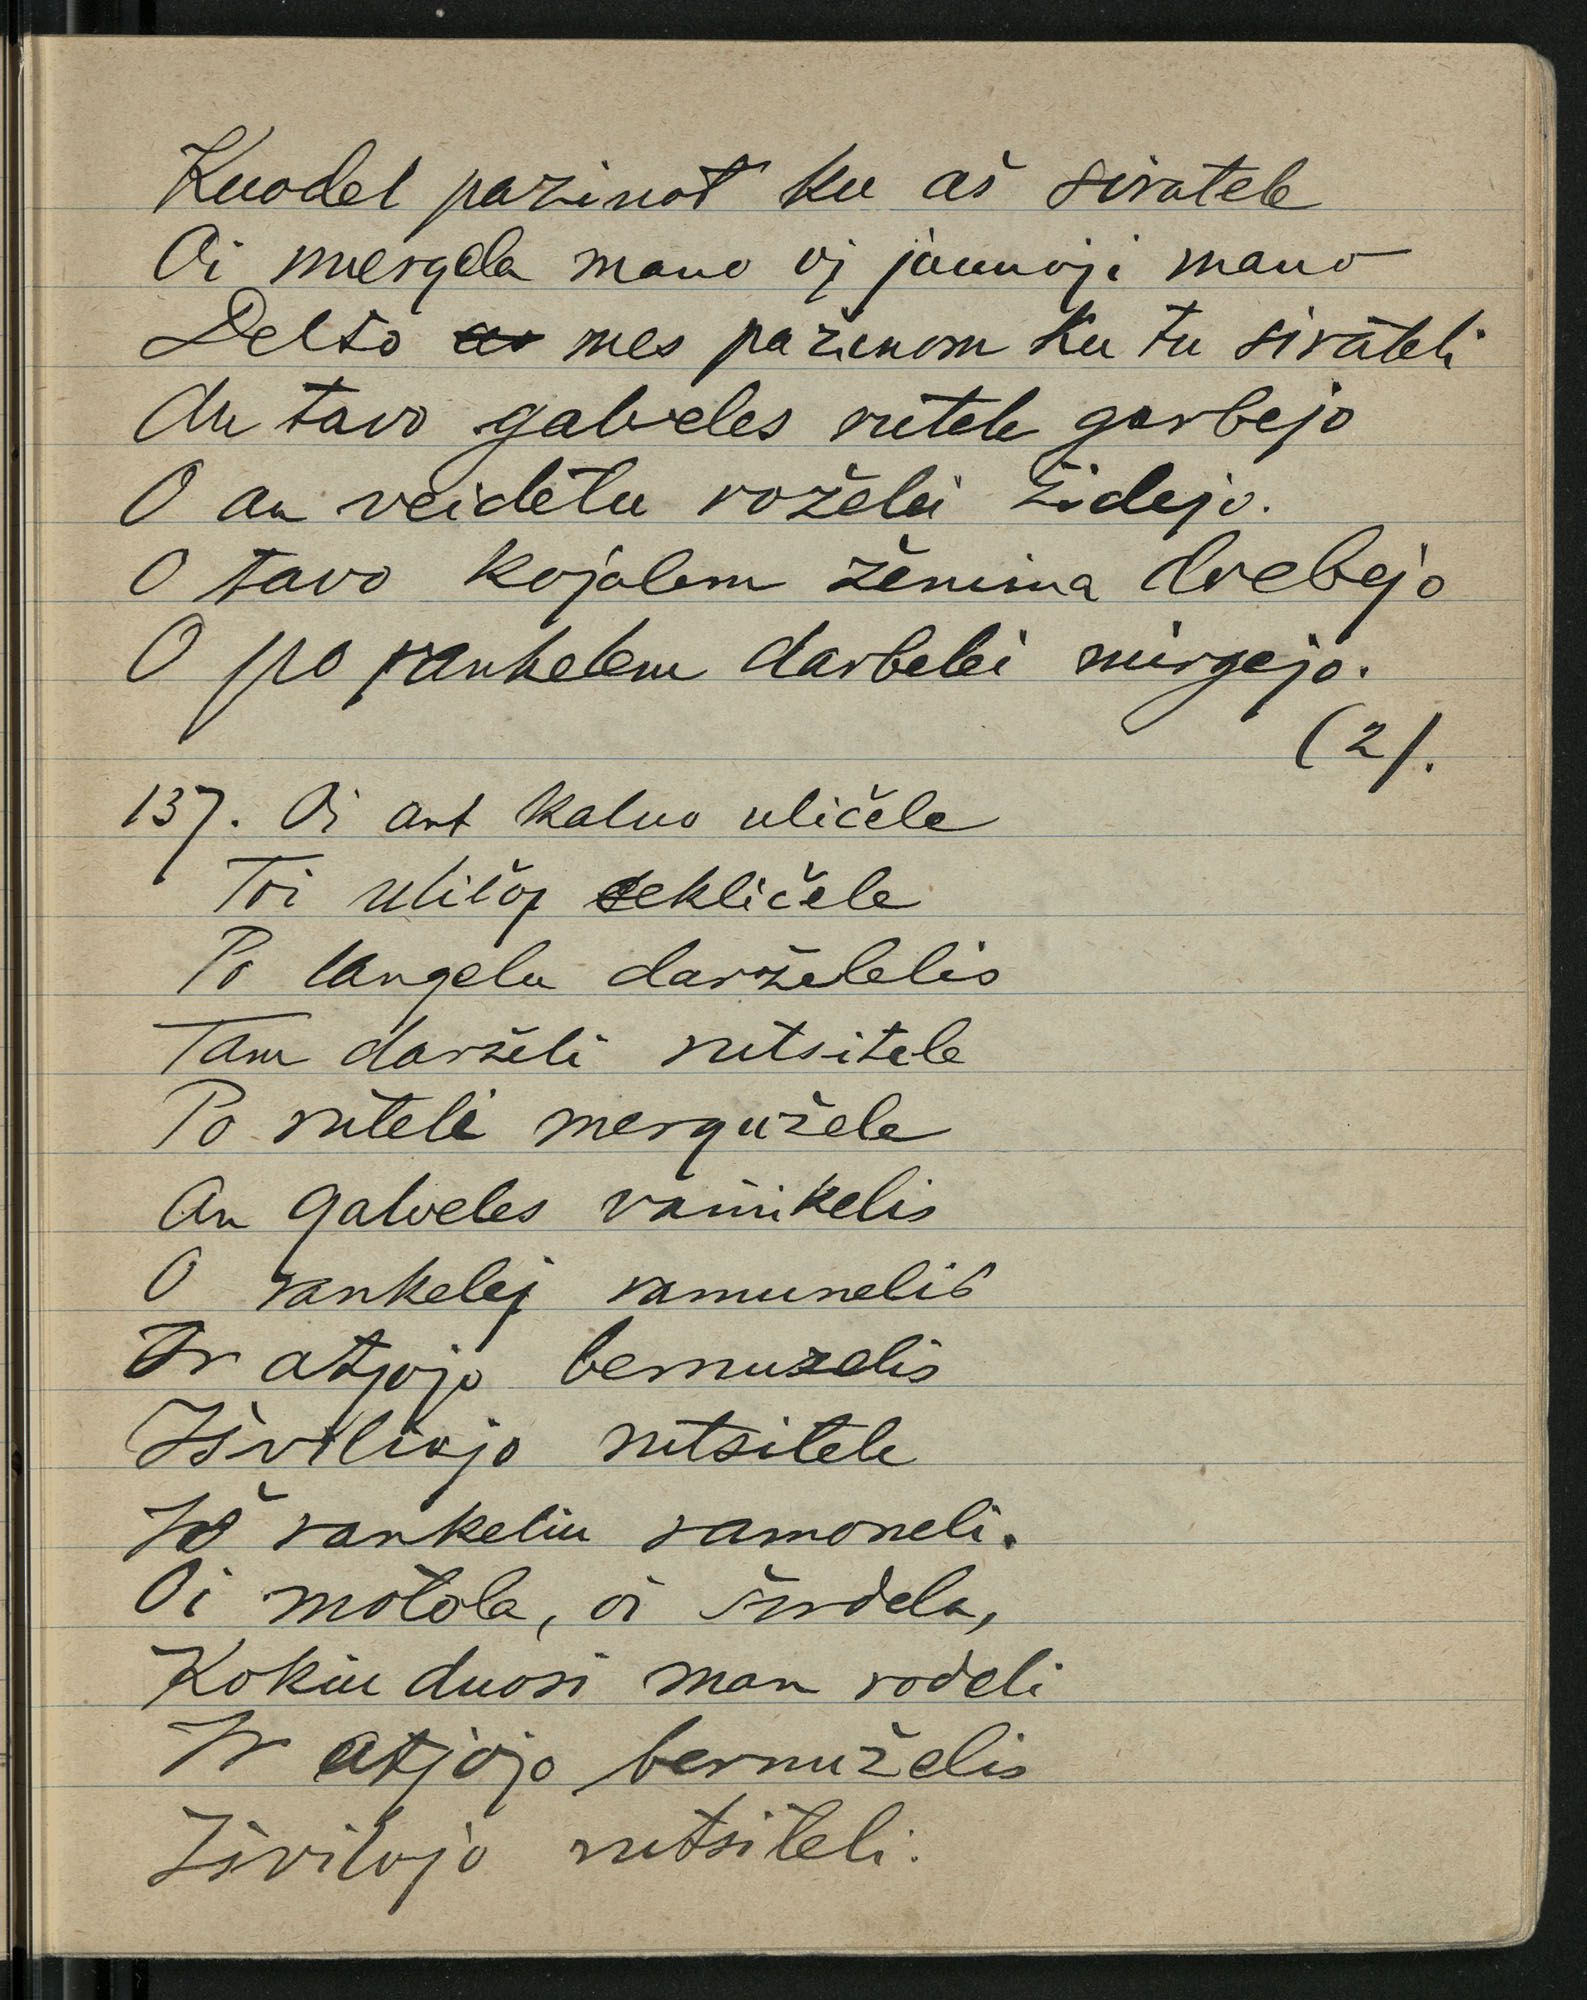 Kuodel pazinot ku aš siratele
Oi mergela mano oj jaunoji mano
Delto mes pažinom ku tu sirateli
An tavo galveles rutele garbejo
O an veidelu roželei židejo.
O tavo kojalem žemina drebejo
O po rankelem darbelei mirgejo.
(2).
137. Oi ant kalno uličele
Toi uličoj sekličele
Po langelu darželelis
Tam darželi rutsitele
Po ruteli mergužele
An galveles vainikelis
O rankelej ramunelis
Ir atjojo bernuzelis
Išviliojo rutsitele
Iš rankeliu ramoneli.
Oi motola, oi širdela,
Kokiu duosi man rodeli
Ir atjojo bernuželis
Išvilojo rutsiteli.